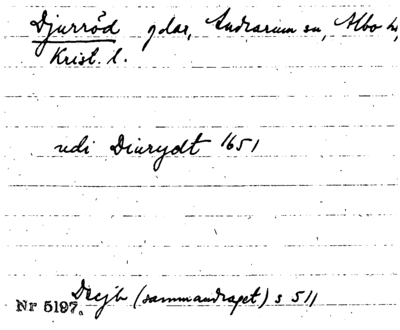 Djurröd gdar, Andrarum sn, Albo hd,
Krist. l.
udi Diurydt 1651
Dzjb (sammandraget) s 511
Nr 5197.